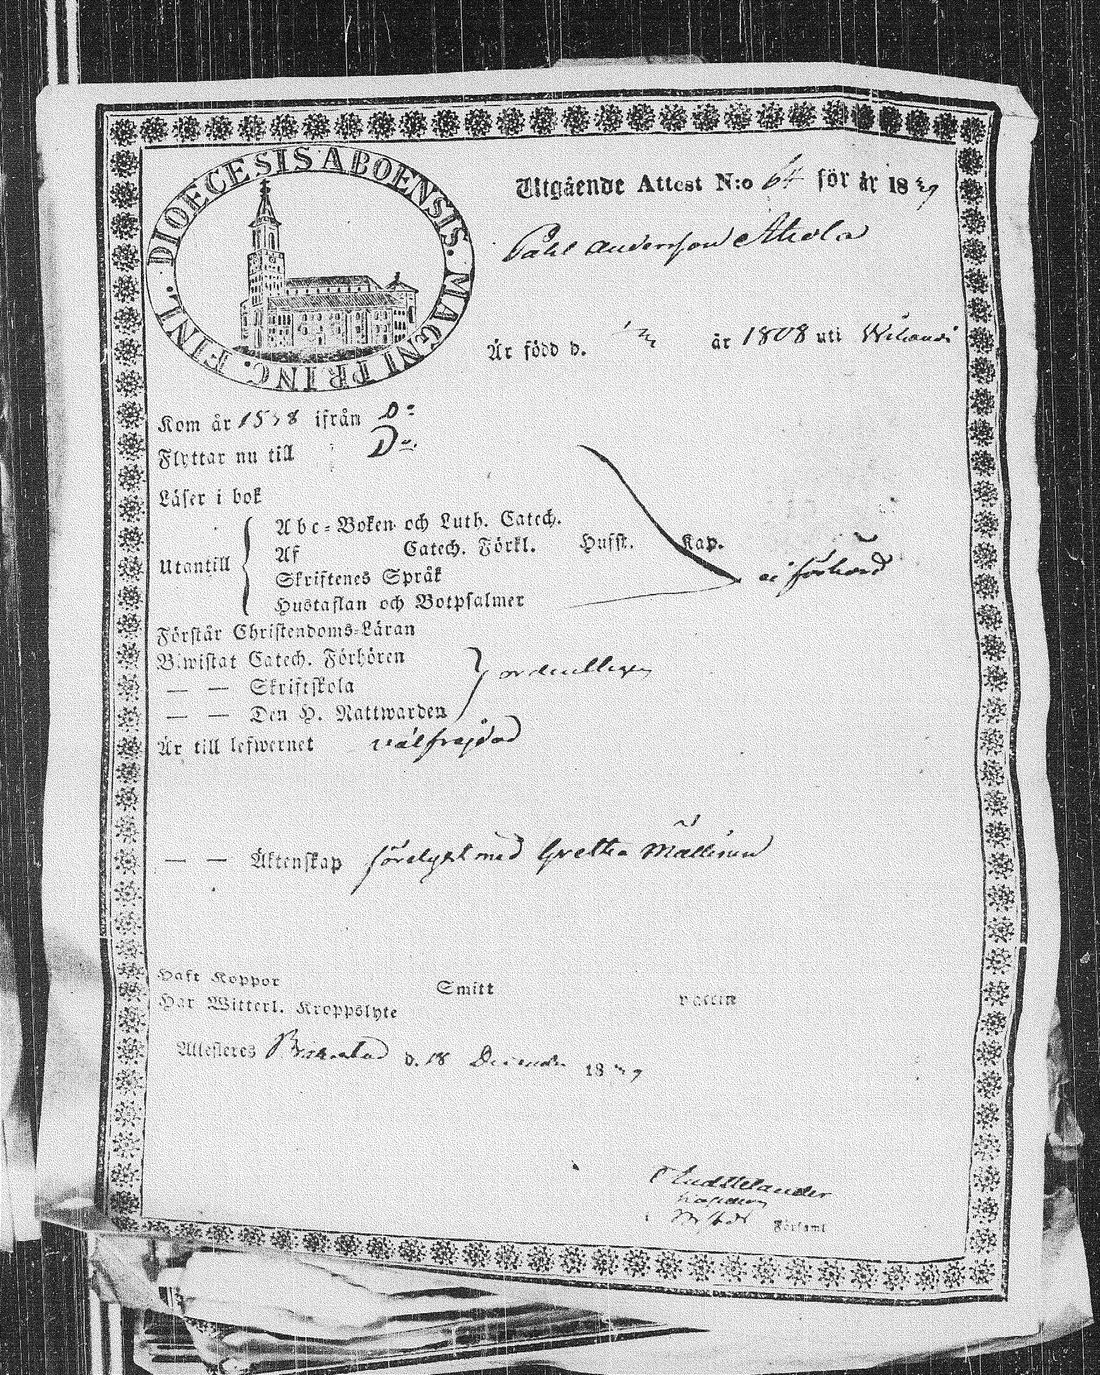 DIOECESIS ABOENSIS. MAGNI PRINC. FINL.
Utgående Attest N:o 64 för år 18
Påhl Andersson Ahola
Är född d. år 1808 uti
Kom år ifrån Do
Flyttar nu till Do
Läser i bok
Utantill
Abc-Boken och Luth. Catech.
Af Catech. Förkl. Husst. Kap.
Skriftenes Språk
Hustaflan och Botpsalmer
ej förhörd
Förstår Christendoms-Läran
Biwistat Catech. Förhören
— — Skriftskola
— — Den H. Nattwarden
ordentligen
Är till lefwernet wälfrejdad
— — Äktenskap med Gretha
Haft Koppor Smitt vaccin
Har Witterl. Kroppslyte
Attesteres d. 18 December 18
Församl